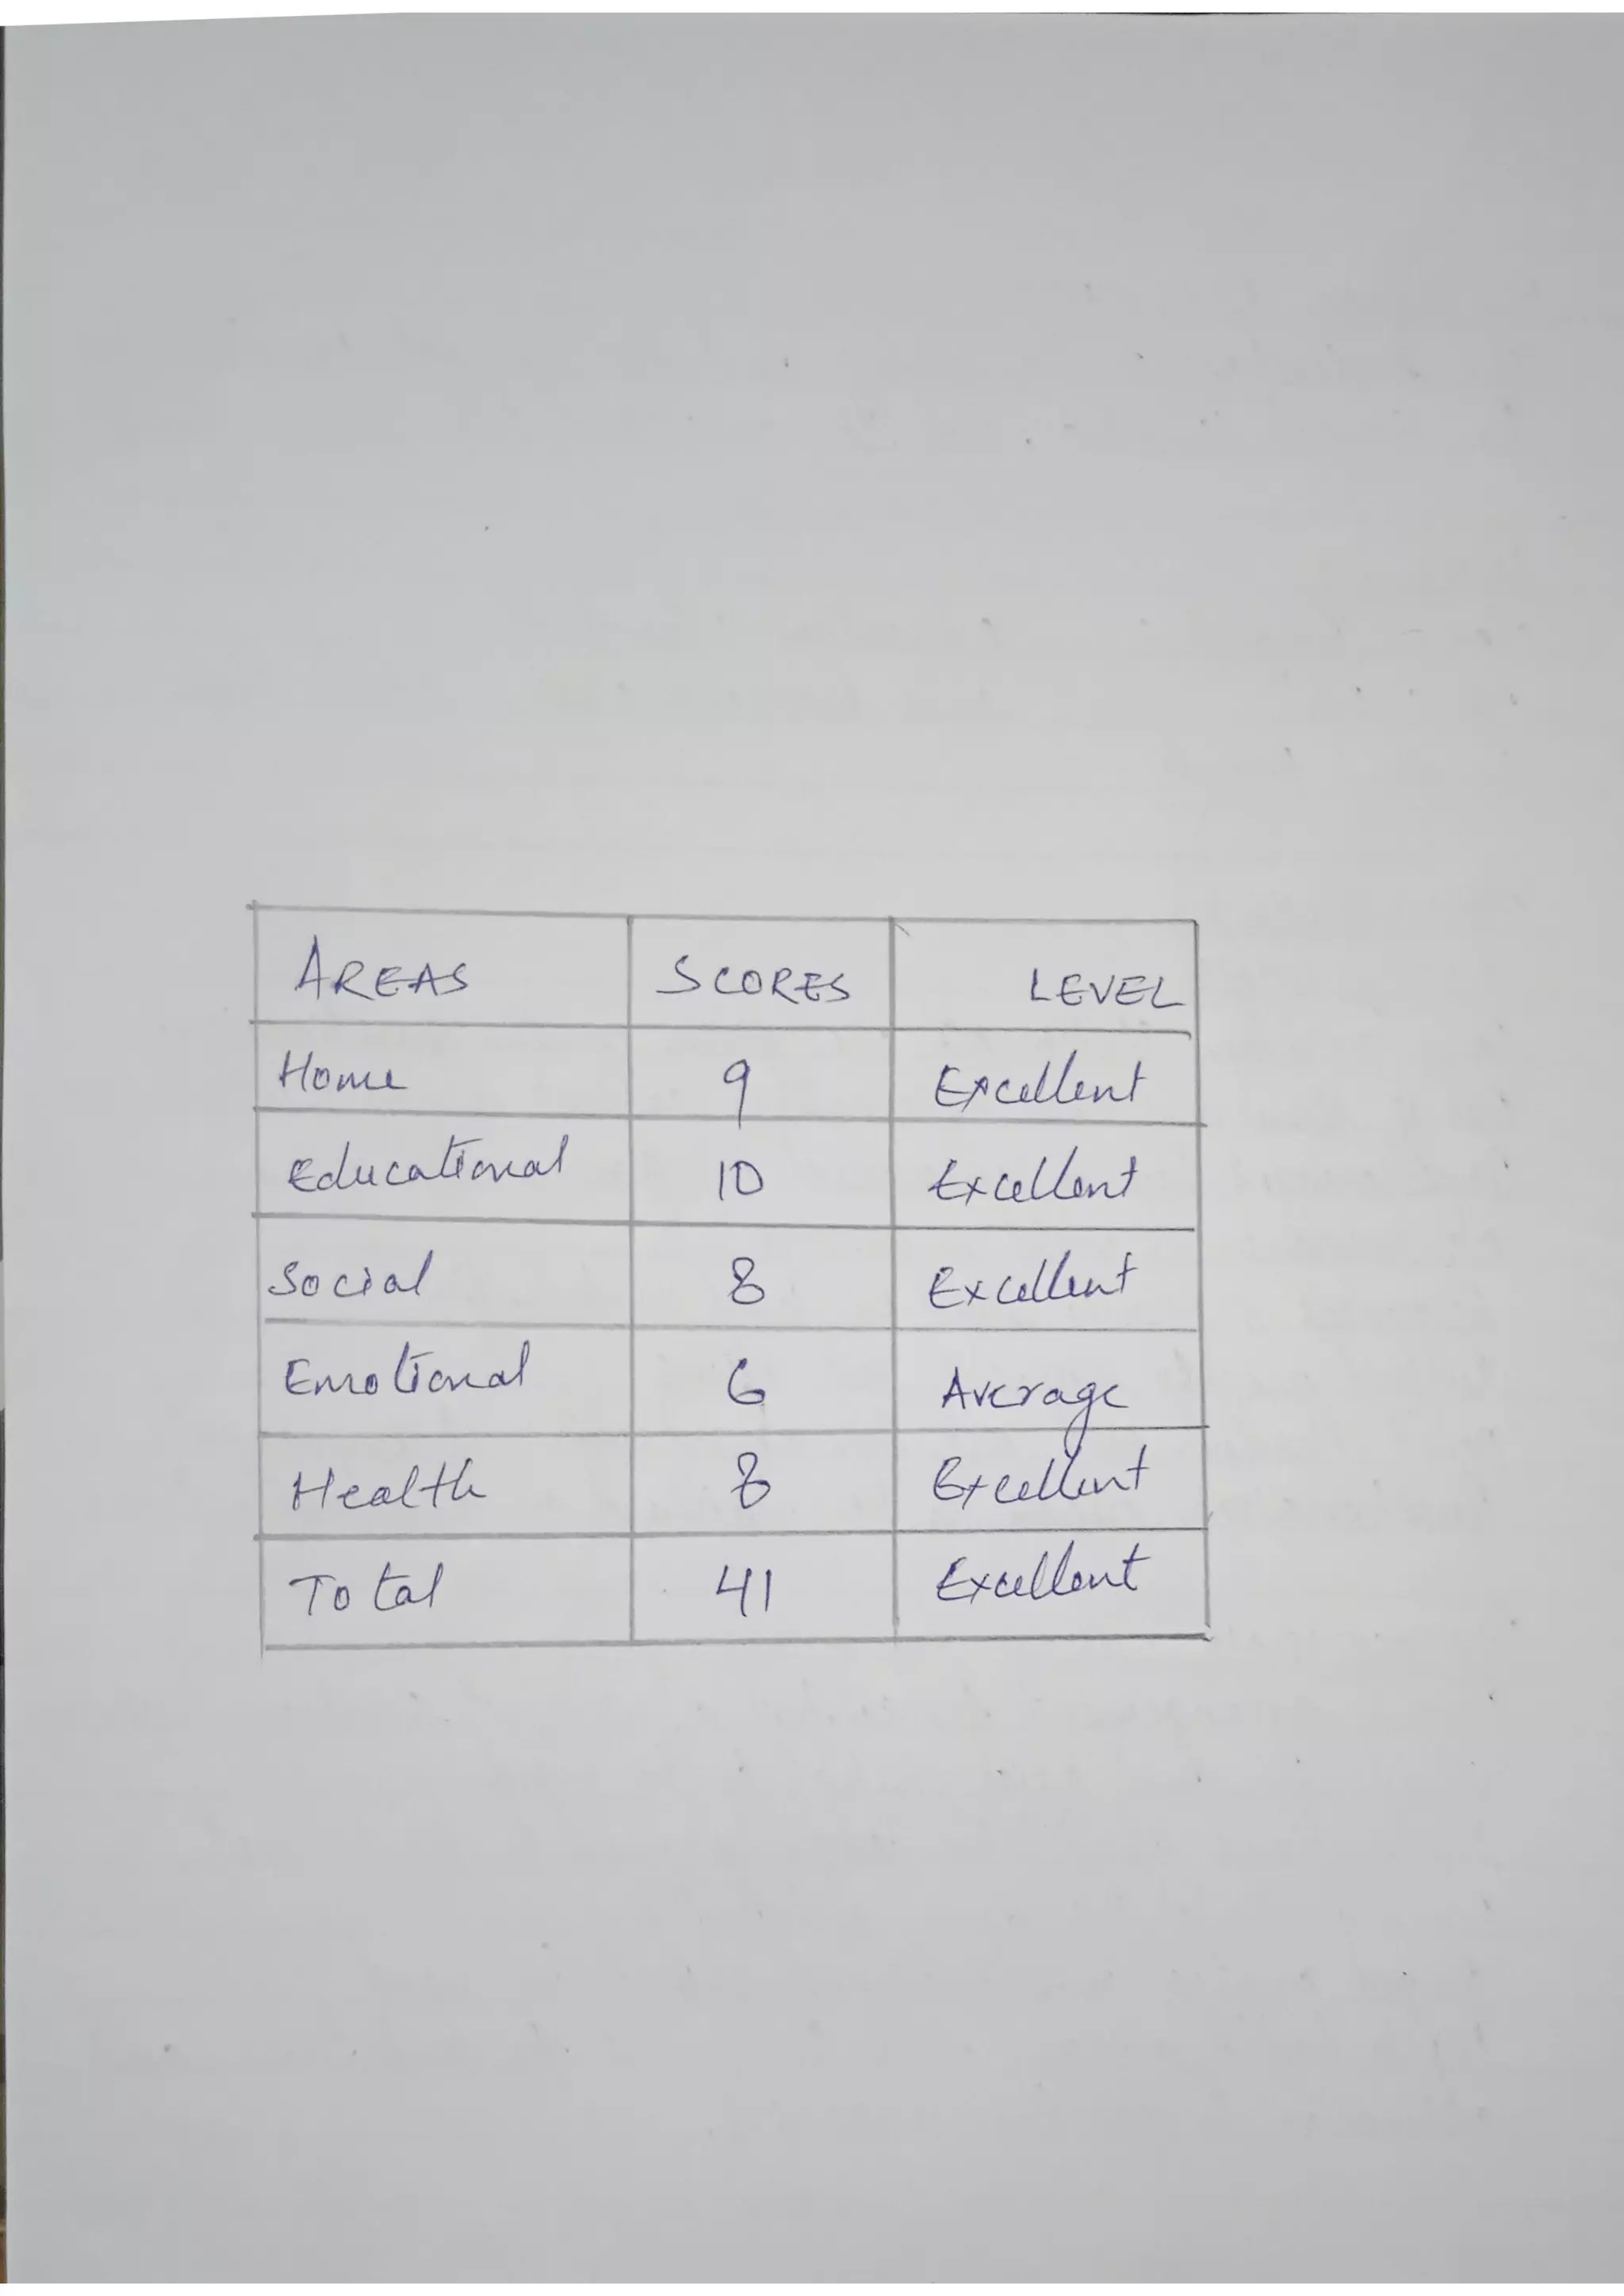 AREAS SCORES LEVEL
Home 9 Excellent
Educational 10 Excellent
Social 8 Excellent
Emotional 6 Average
Health 8 Excellent
Total 41 Excellent